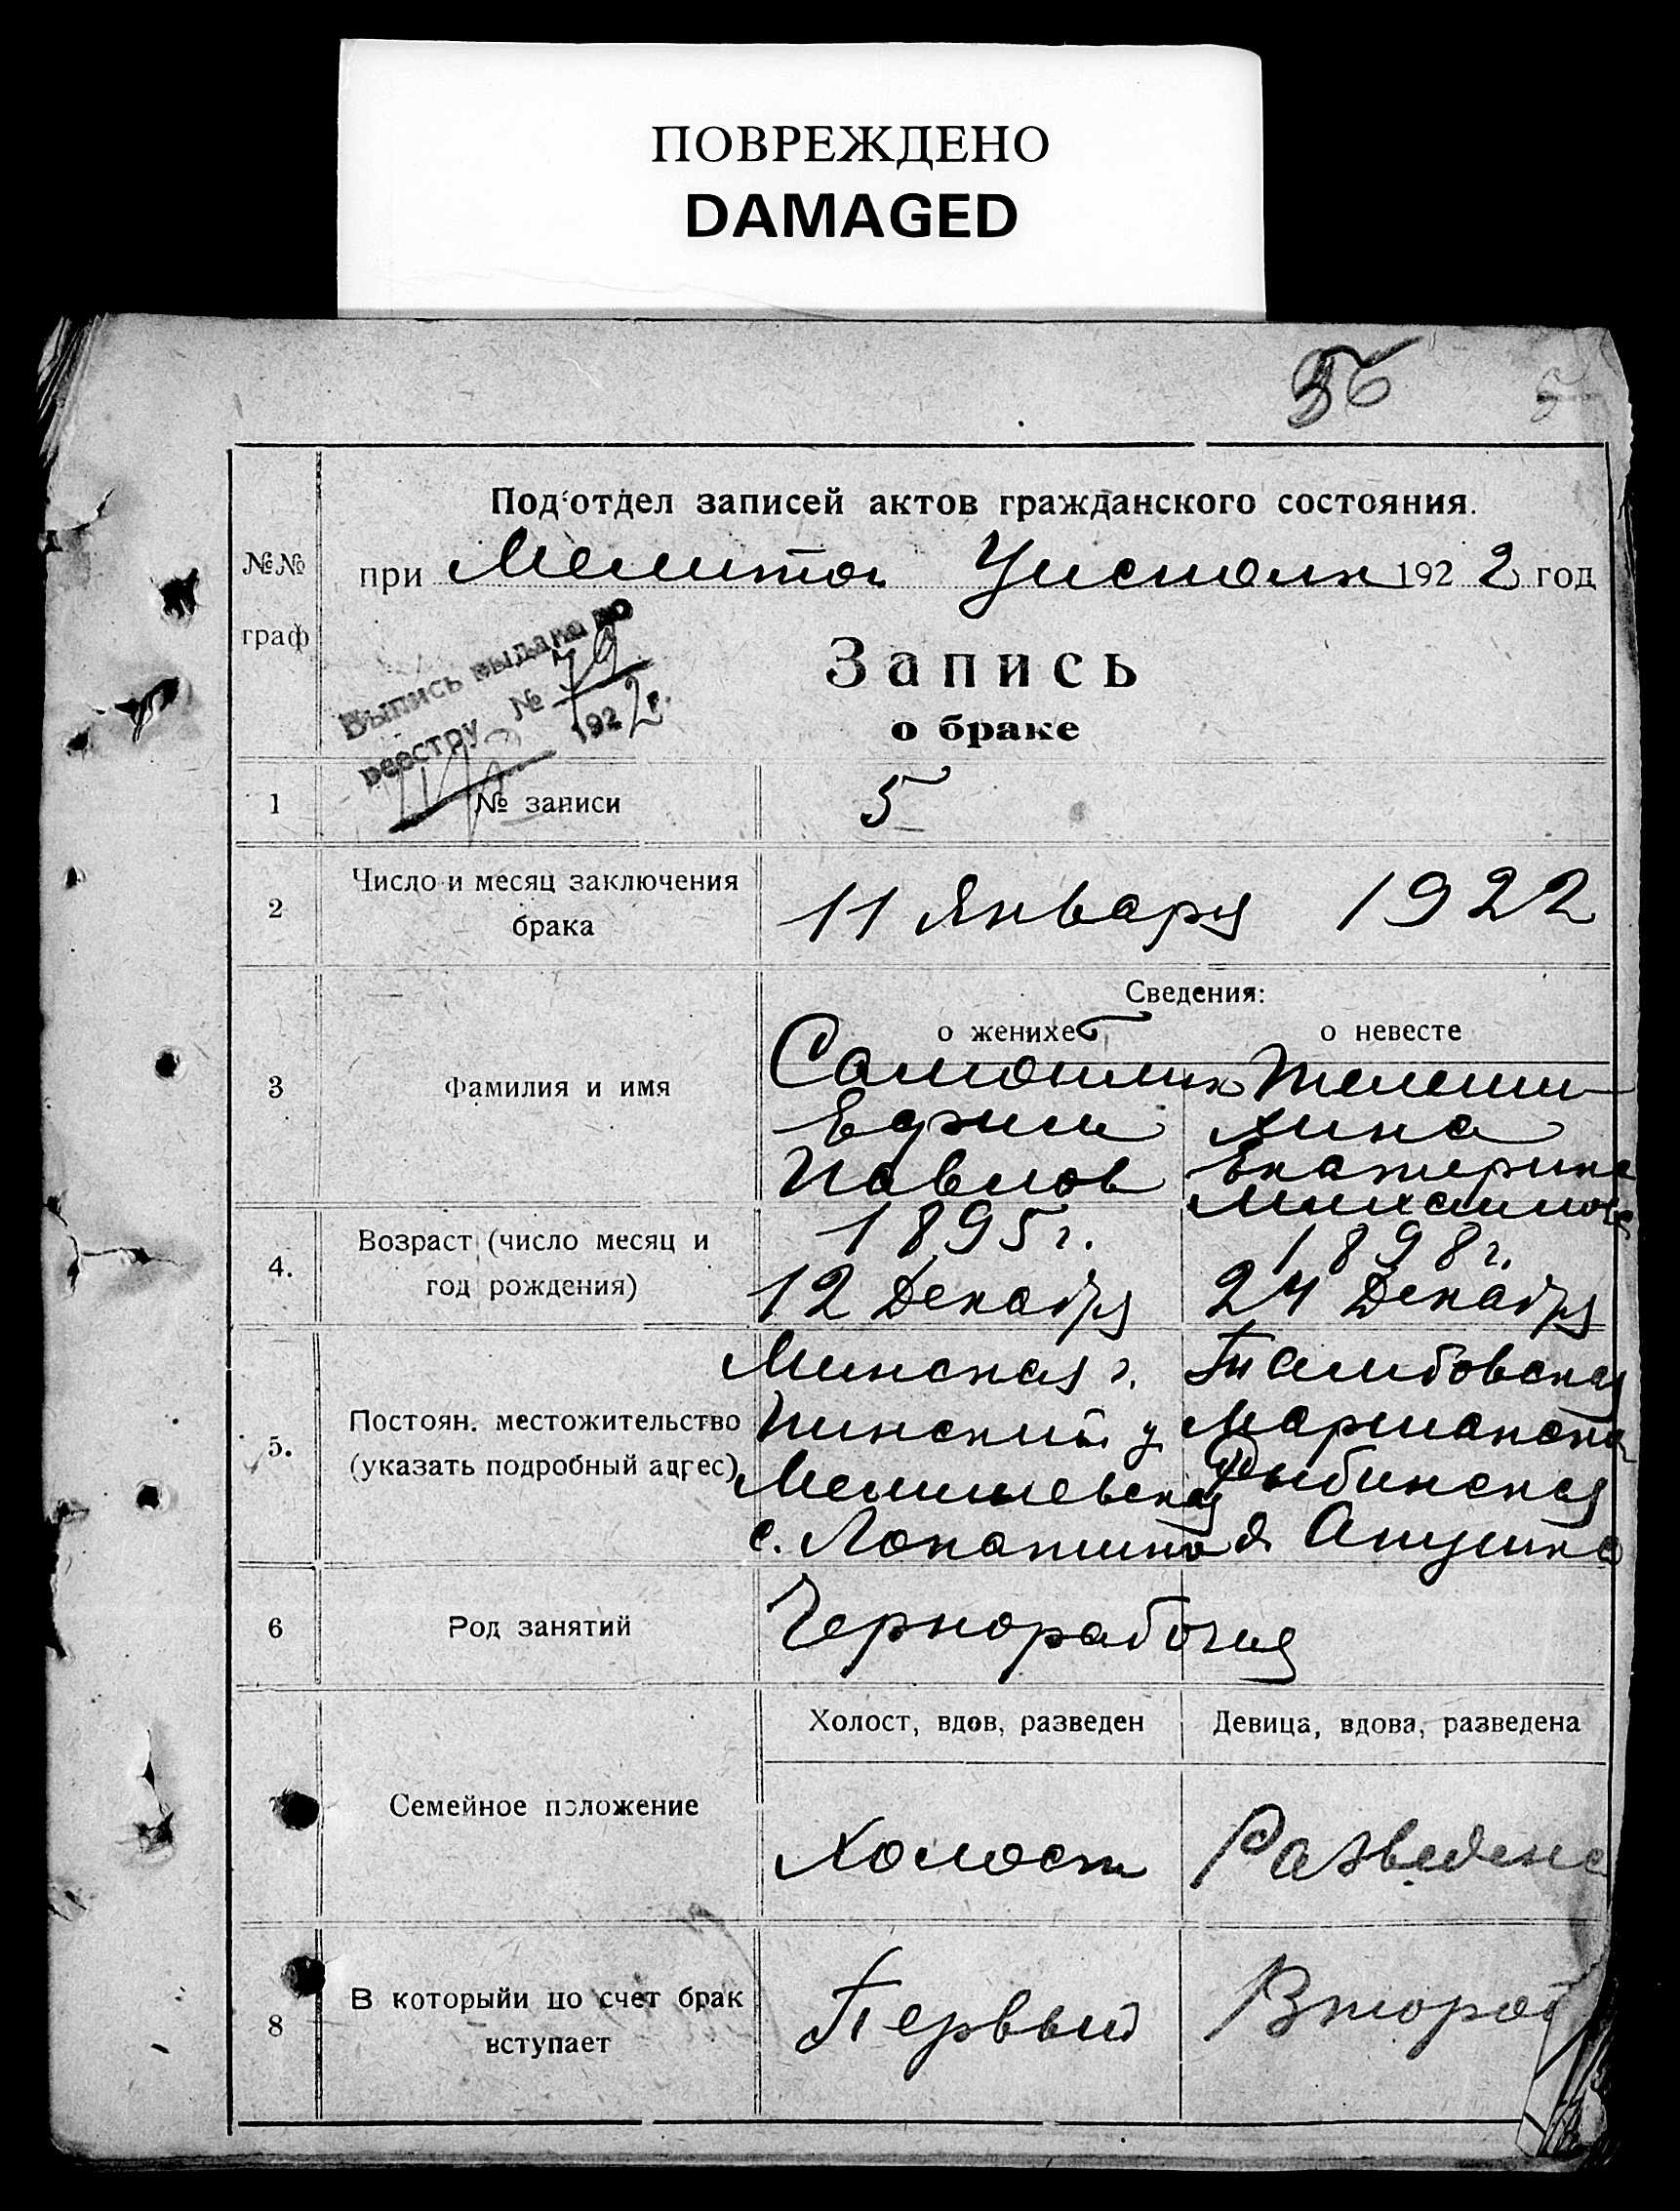 ПОВРЕЖДЕНО
DAMAGED
5
Подотдел записей актов гражданского состояния.
№№
граф
при Мелитоп Уисполк 1922 год
Выпись выдана по
реестру № 79
1922г.
Запись
о браке
1 № записи 5
2 Число и месяц заключения
брака
11 Января 1922
Сведения:
о женихе о невесте
3 Фамилия и имя
Ефим Анна
Павлов Екатерина
Михаилова
4. Возраст (число месяц и
год рождения)
1895г. 1898г.
12 Декабря 24 Декабря
5. Постоян. местожительство
(указать подробный адрес)
Минская г. Тамбовская
Пинский у Моршанско
Рыбинская
с. Лопатино д. Апушка
6 Род занятий Чернорабочия
Холост, вдов, разведен Девица, вдова, разведена
Семейное положение
Холост Разведена
8 В которыйи по счет брак
вступает
Первый Второй